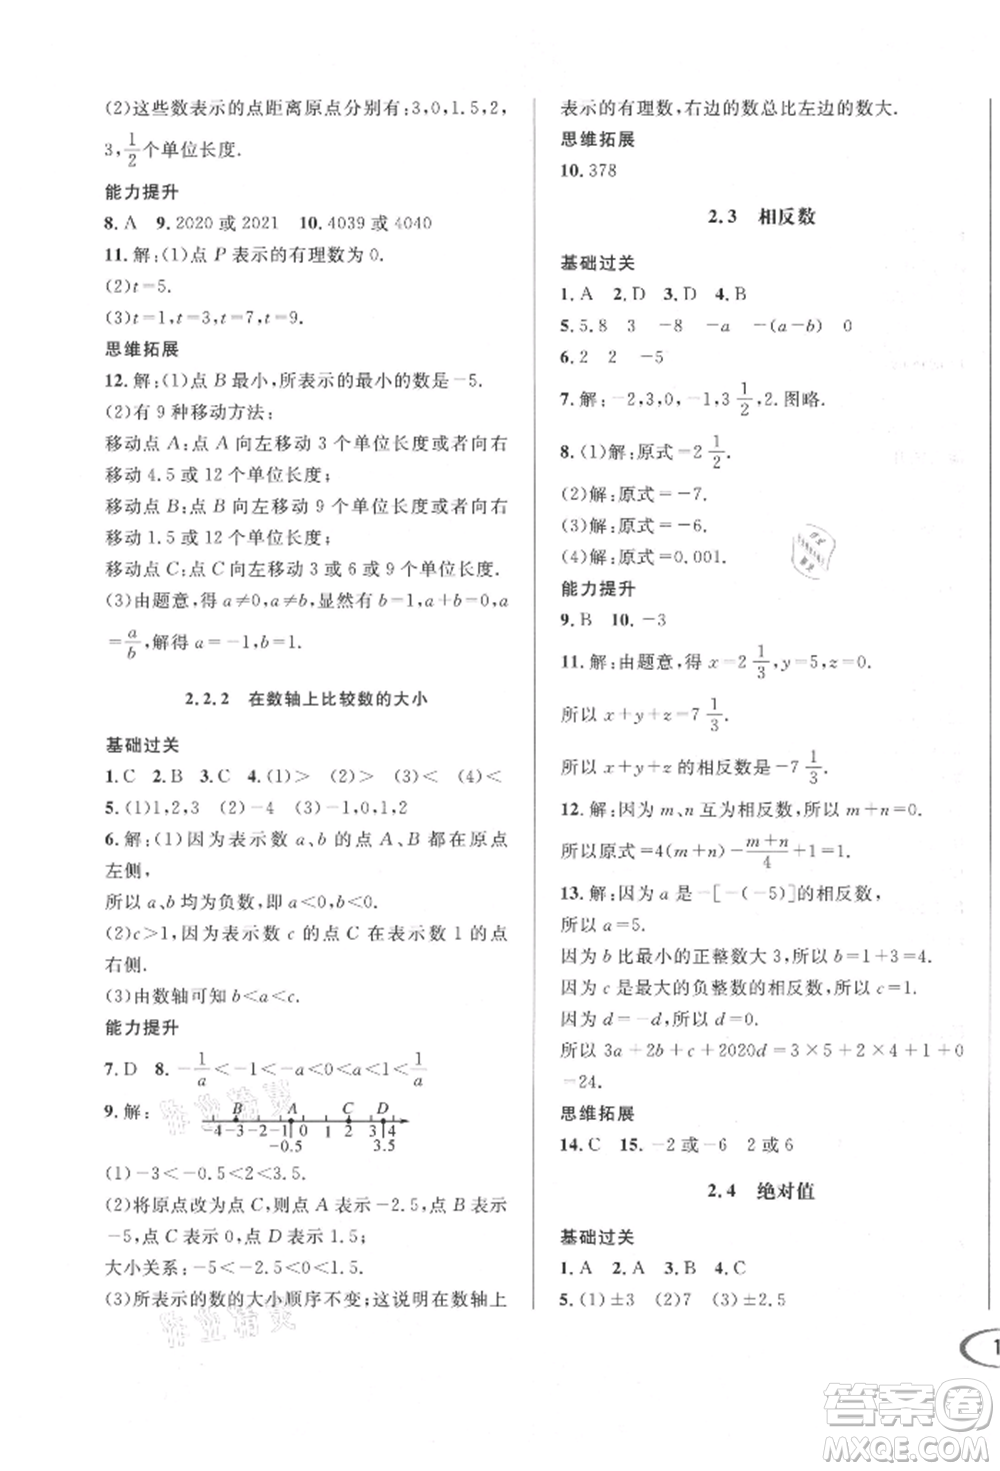 (2)这些数表示的点距离原点分别有:3,0,1.5,2,
3,1/2个单位长度.
能力提升
8.A 9.2020或2021 10.4039或4040
11.解:(1)点 P 表示的有理数为0.
(2)t=5.
(3)t=1,t=3,t=7,t=9.
思维拓展
12.解:(1)点 B 最小,所表示的最小的数是-5.
(2)有9种移动方法:
移动点 A:点 A 向左移动 3 个单位长度或者向右
移动 4.5 或 12 个单位长度;
移动点 B:点 B 向左移动 9 个单位长度或者向右
移动 1.5 或 12 个单位长度;
移动点 C:点 C 向左移动 3 或 6 或 9 个单位长度.
(3)由题意,得 a≠0,a≠b,显然有 b=1,b=a,a
=a/b,解得 a=-1,b=1.
2.2.2 在数轴上比较数的大小
基础过关
1.C 2.B 3.C 4.(1)> (2)> (3)< (4)<
5.(1)1,2,3 (2)-4 (3)0,1,2
6.解:(1)因为表示数 a、b 的点 A、B 都在原点
左侧,
所以 a、b 均为负数,即 a<0,b<0.
(2)c>1,因为表示数 c 的点 C 在表示数 1 的点
右侧.
(3)由数轴可知 b<a<c.
能力提升
7.D 8.-1/a<-1<-a<0<a<1<1/a
9.解:
B A C D
-4 -3 -2 -1 0 1 2 3 4
-0.5 3.5
(1)-3<-0.5<2<3.5.
(2)将原点改为点 C,则点 A 表示-2.5,点 B 表示
-5,点 C 表示 0,点 D 表示 1.5;
大小关系:-5<-2.5<0<1.5.
(3)所表示的数的大小顺序不变;这说明在数轴上
表示的有理数,右边的数总比左边的数大.
思维拓展
10.378
2.3 相反数
基础过关
1.A 2.D 3.D 4.B
5.5.8 3 -8 -a -(a-b) 0
6.2 2 -5
7.解:-2,3,0,-1,3 1/2,2.图略.
8.(1)解:原式=2 1/2.
(2)解:原式=-7.
(3)解:原式=-6.
(4)解:原式=0.001.
能力提升
9.B 10.-3
11.解:由题意,得 x=2 1/3,y=5,z=0.
所以 x+y+z=7 1/3.
所以 x+y+z的相反数是-7 1/3.
12.解:因为 m、n 互为相反数,所以 m+n=0.
所以原式=4(m+n)-(m+n)/4+1=1.
13.解:因为 a 是-[-(-5)]的相反数,
所以 a=5.
因为 b 比最小的正整数大 3,所以 b=1+3=4.
因为 c 是最大的负整数的相反数,所以 c=1.
因为 d=-d,所以 d=0.
所以 3a+2b+c+2020d=3×5+2×4+1+0
=24.
思维拓展
14.C 15.-2或-6 2或6
2.4 绝对值
基础过关
1.A 2.A 3.B 4.C
5.(1)±3 (2)7 (3)±2.5
1
答案卷
MXQE.COM